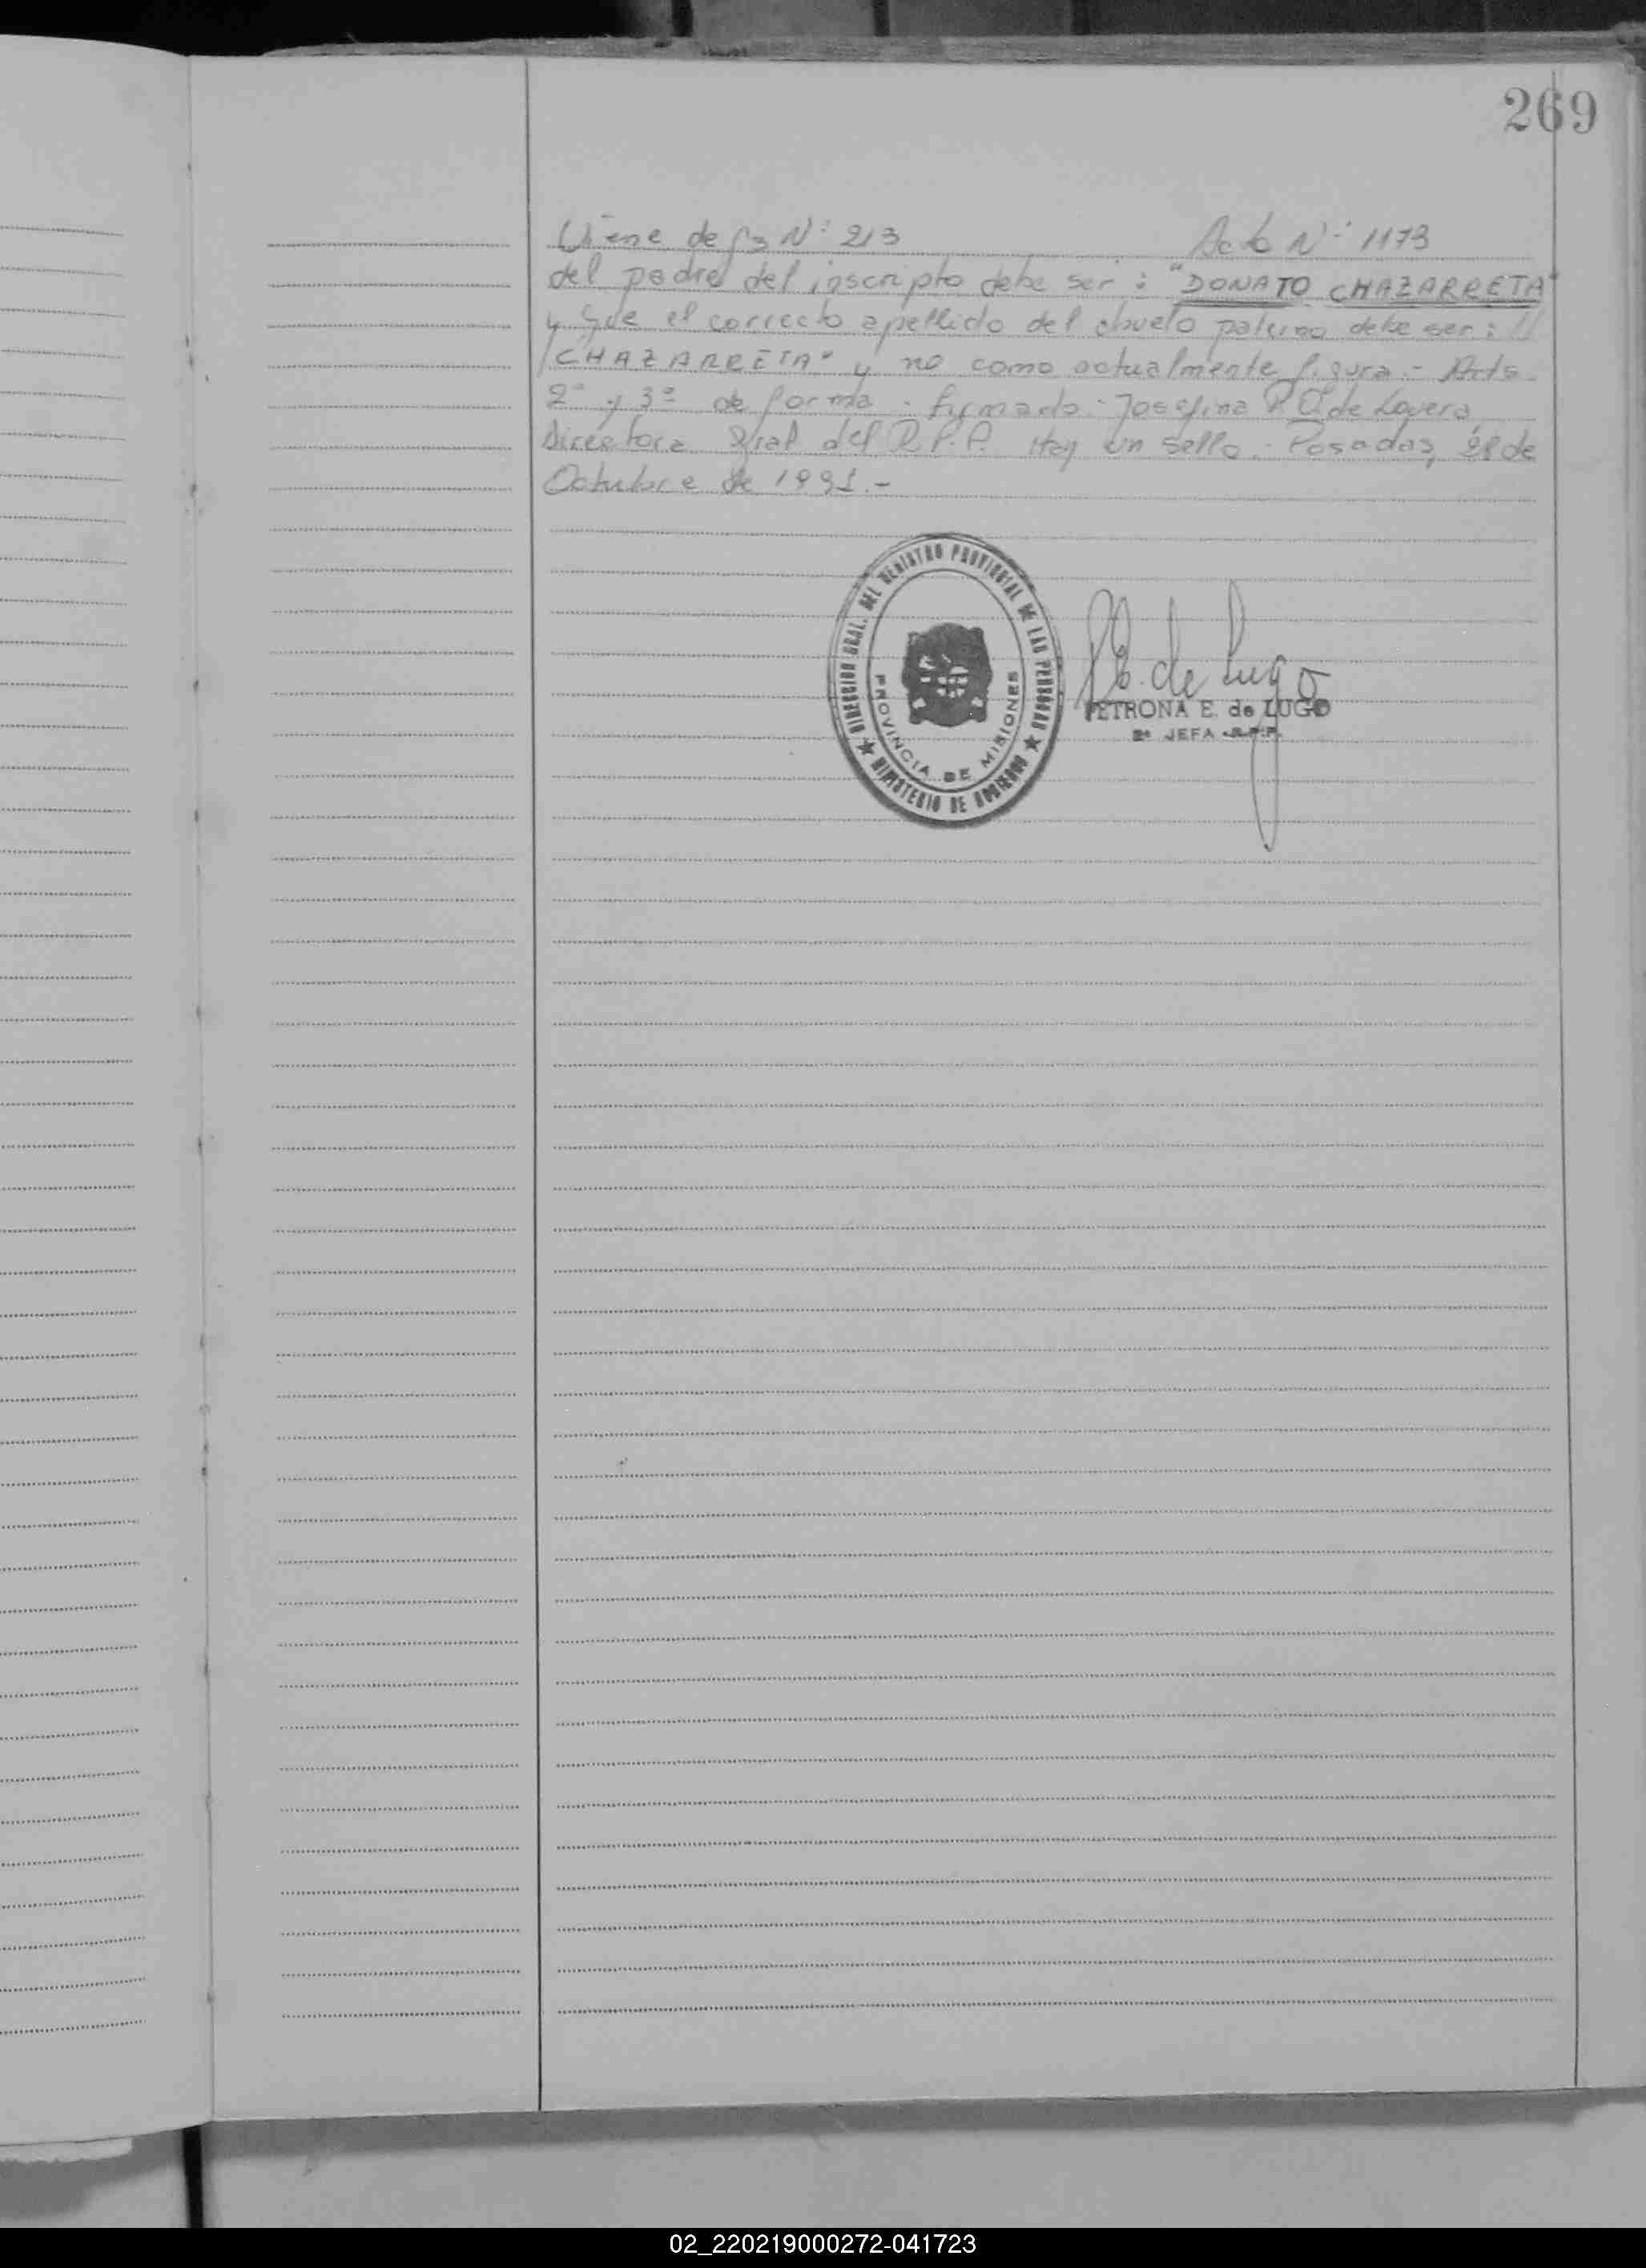 269
Viene de fs N° 213 Acta N° 1173
del padre del inscripto debe ser : "DONATO CHAZARRETA"
y que el correcto apellido del abuelo paterno debe ser : "
CHAZARRETA" y no como actualmente figura.- Arts.
2° y 3° de forma . firmado . Josefina de Lovera,
Directora Gral del R.P.P. Hay un sello . Posadas, 28 de
Octubre de 1991.-
DIRECCION GRAL. DEL REGISTRO PROVINCIAL DE LAS PERSONAS
PROVINCIA DE MISIONES
MINISTERIO DE GOBIERNO
E. de Lugo
PETRONA E. de LUGO
JEFA R.P.P.
02_220219000272-041723